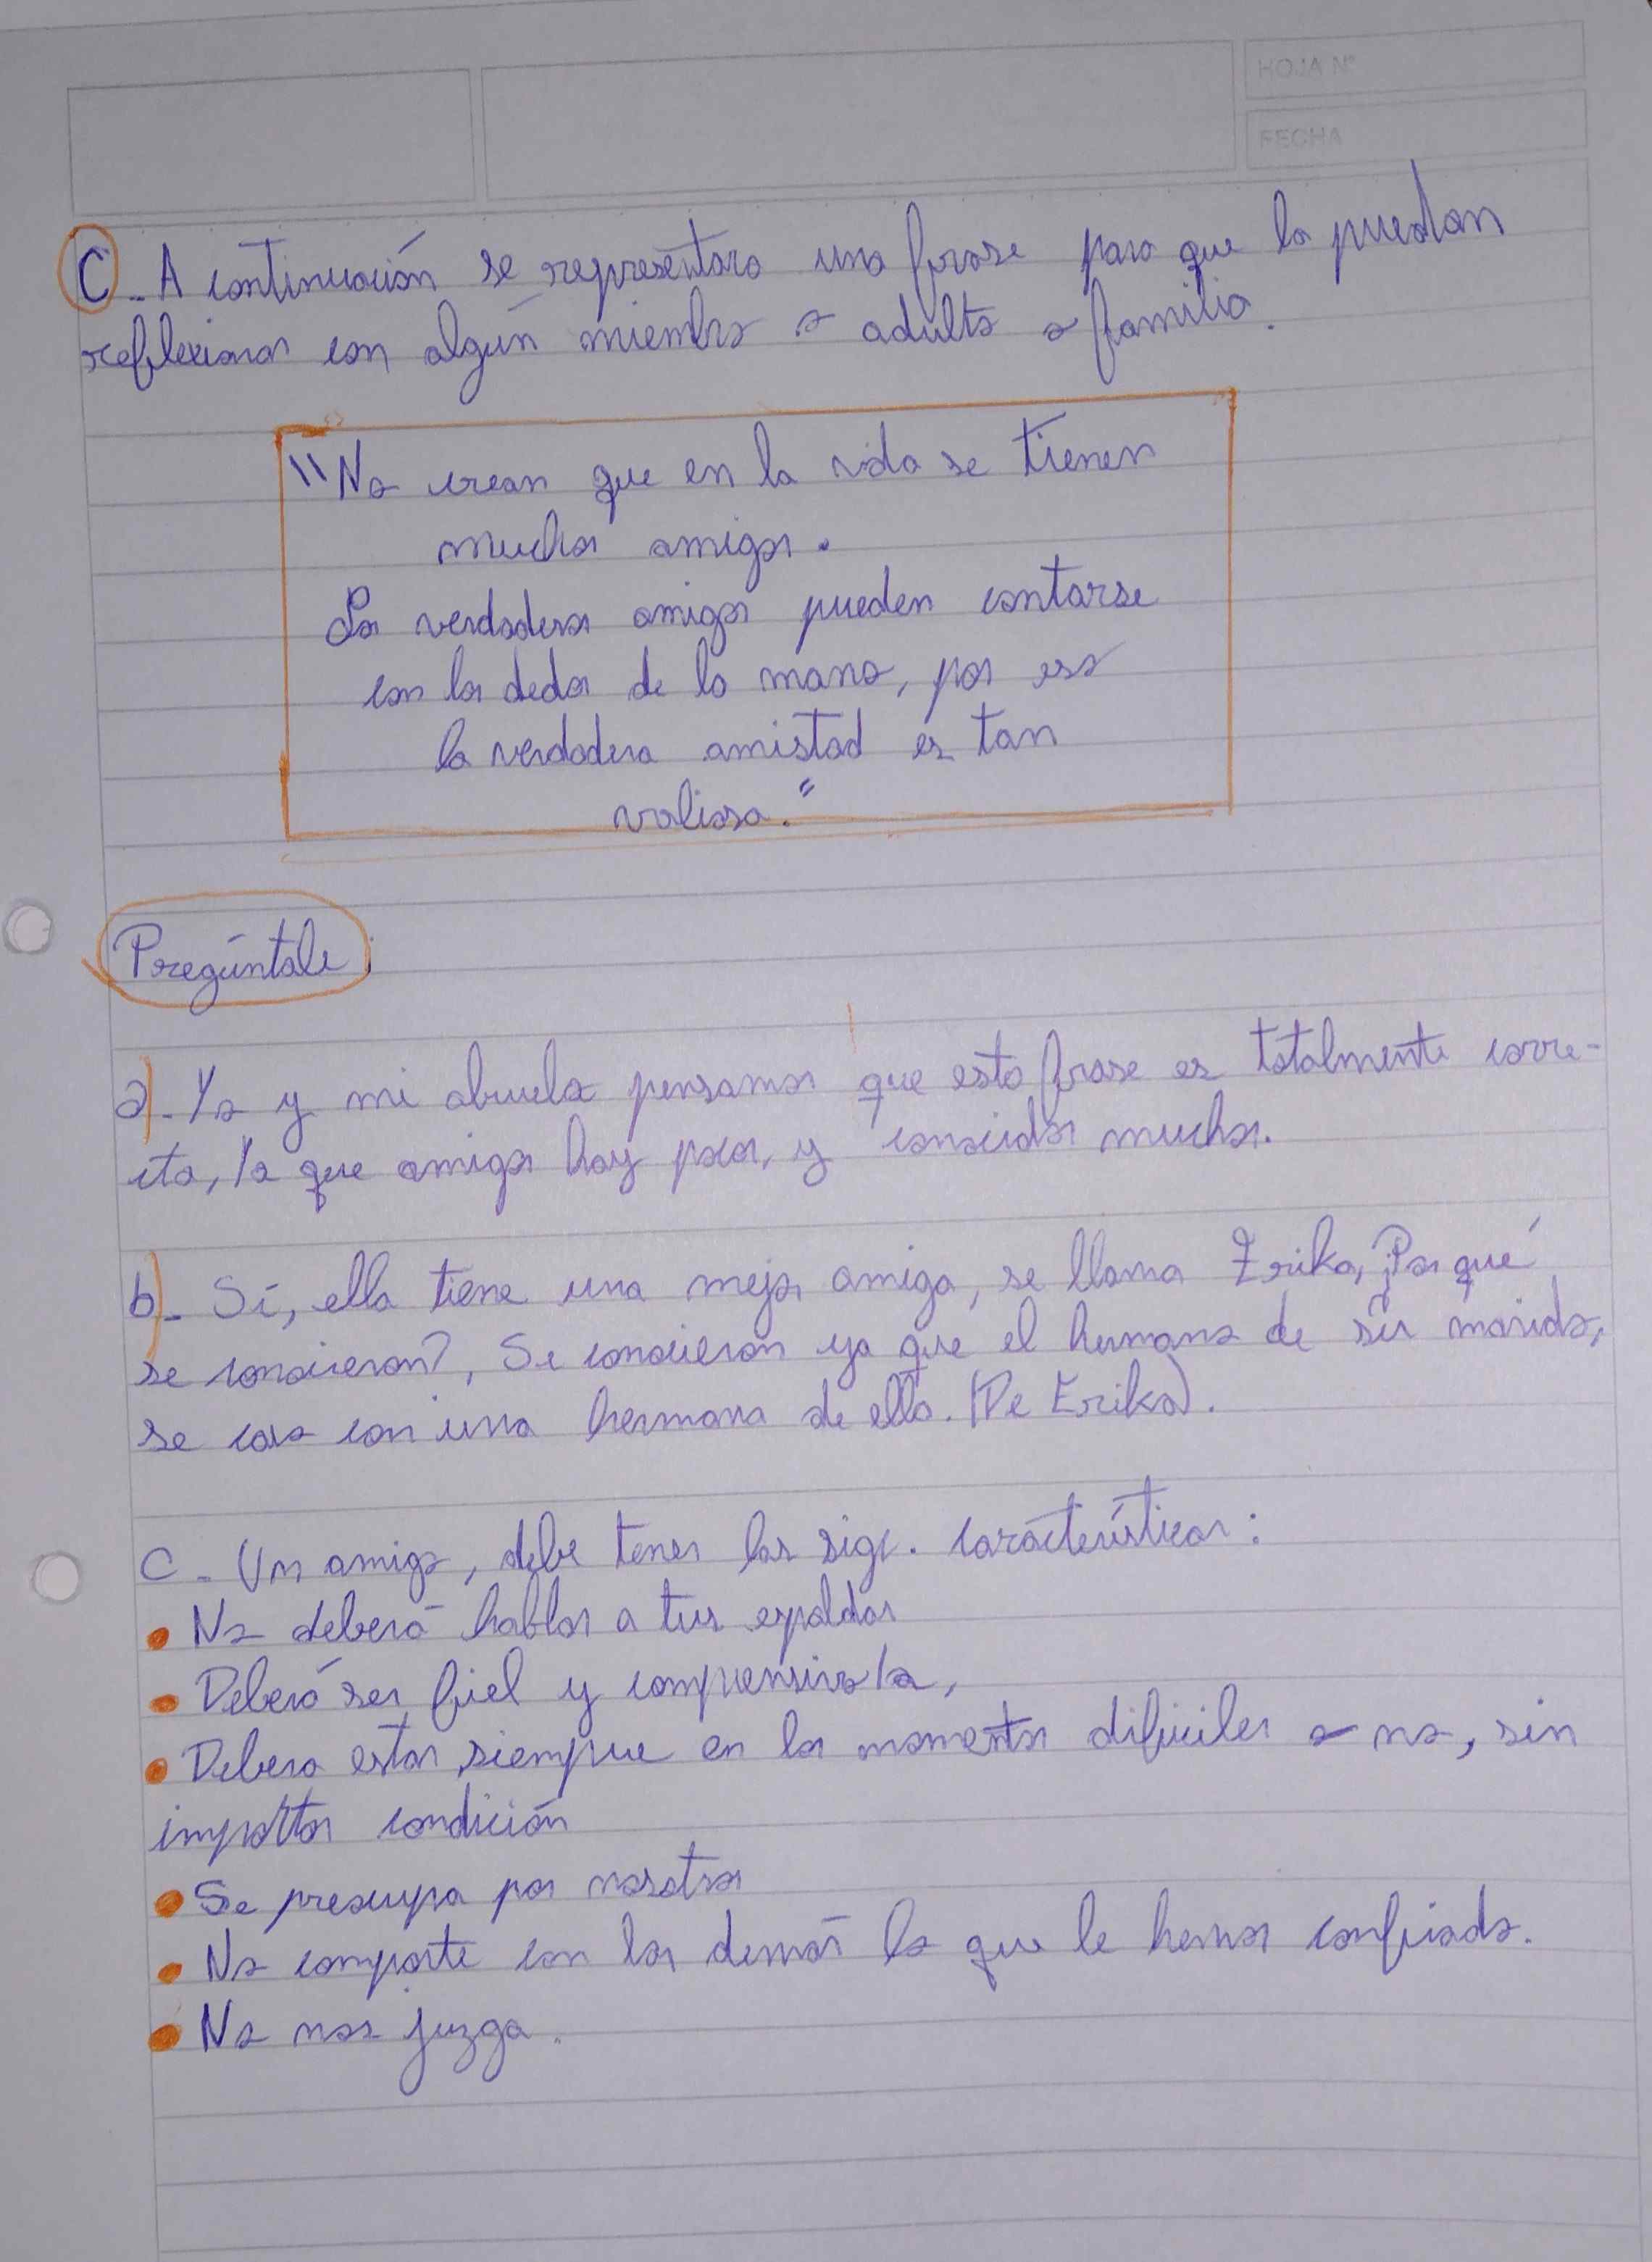 HOJA N°
FECHA
C - A continuación se representara una frase para que la puedan
reflexionar con algún miembro o adulto o familia.
"No crean que en la vida se tienen
muchos amigos.
Los verdaderos amigos pueden contarse
con los dedos de la mano, por eso
la verdadera amistad es tan
valiosa."
Pregúntale:
a)- Yo y mi abuela pensamos que esta frase es totalmente corre-
cta, ya que amigos hay pocos, y conocidos muchos.
b)- Sí, ella tiene una mejor amiga, se llama Erika, ¿Por qué
se conocieron?, Se conocieron ya que el hermano de su marido,
se caso con una hermana de ella. (De Erika).
C - Un amigo, debe tener las sigs. características:
• No deberá hablar a tus espaldas
• Deberá ser fiel y comprensivo/a,
• Debera estar siempre en los momentos dificiles o no, sin
importar condición
• Se preocupa por nosotros
• No comparte con los demás lo que le hemos confiado.
• No nos juzga.